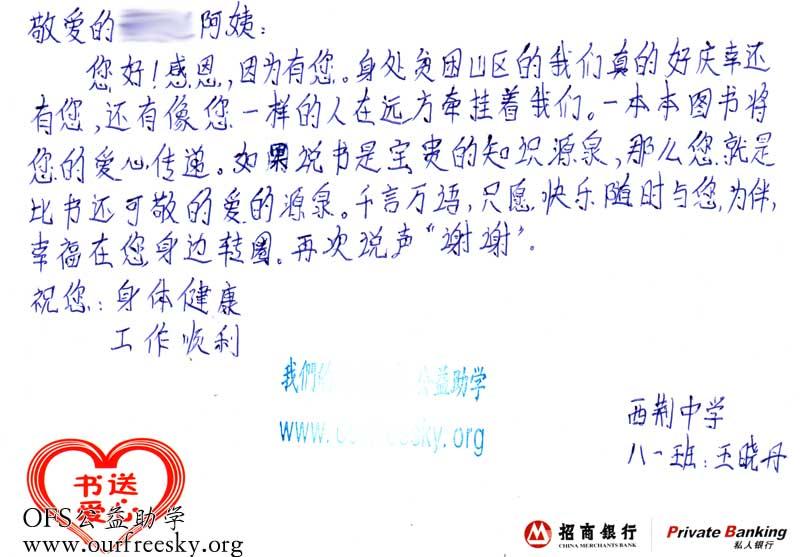 敬爱的 阿姨:
您好!感恩,因为有您。身处贫困山区的我们真的好庆幸还
有您,还有像您一样的人在远方牵挂着我们。一本本图书将
您的爱心传递。如果说书是宝贵的知识源泉,那么您就是
比书还可敬的爱的源泉。千言万语,只愿快乐随时与您为伴,
幸福在您身边转圈。再次说声“谢谢”。
祝您:身体健康
工作顺利
我們 公益助学
www.ourfreesky.org
西荆中学
八一班:王晓丹
书送
爱心
OFS公益助学
www.ourfreesky.org
招商银行
CHINA MERCHANTS BANK
Private Banking
私人银行